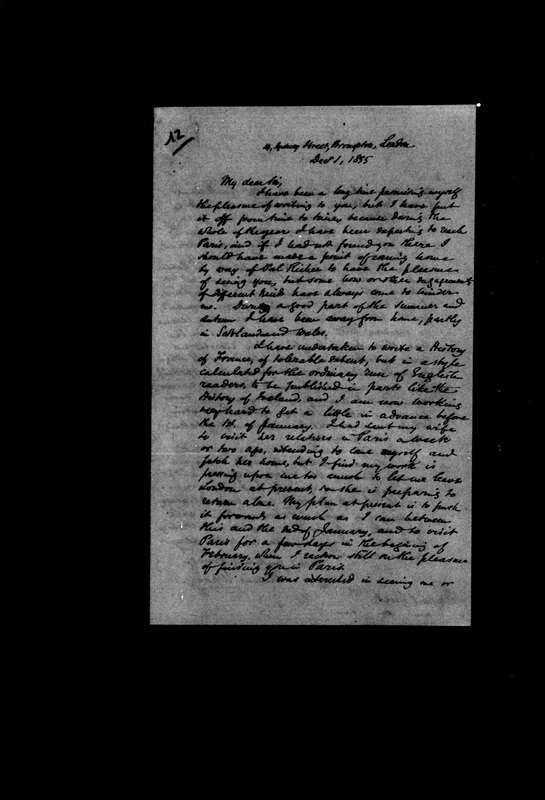 12
Sydney Street, Brompton, London
Decr 1, 1855
My dear Sir,
I have been a long time promising myself
the pleasure of writing to you, but I have put
it off from time to time, because during the
whole of the year I have been expecting to reach
Paris, and if I had not found you there I
should have made a point of coming home
by way of Val Richer to have the pleasure
of seeing you, but some how or other engagements
of different kinds have always come to hinder
me. During a good part of the summer and
autumn I have been away from home, partly
in Scotland and Wales.
I have undertaken to write a History
of France, of tolerable extent, but in a style
calculated for the ordinary run of English
readers, to be published in parts like the
History of Ireland, and I am now working
very hard to get a little in advance before
the 1st of January. I had sent my wife
to visit her relatives in Paris a week
or two ago, intending to come myself and
fetch her home, but I find my work is
pressing upon me too much to let me leave
London at present, so she is preparing to
return alone. My plan at present is to push
it forwards as much as I can between
this and the end of January, and to visit
Paris for a few days in the beginning of
February, when I reckon still on the pleasure
of finding you in Paris.
I was interested in seeing me or